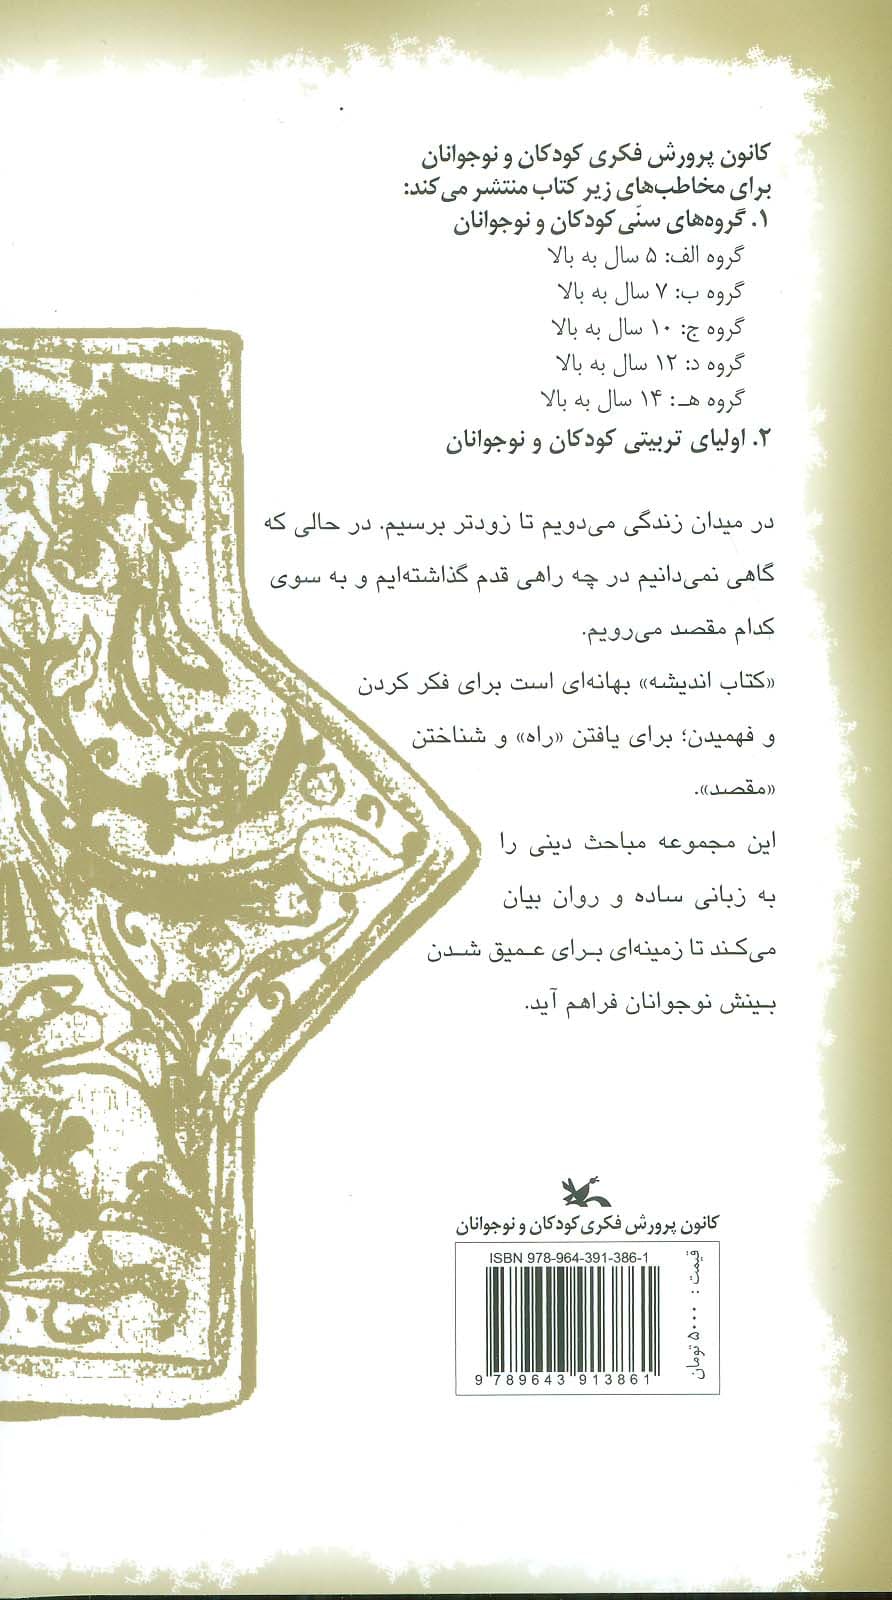 کانون پرورش فکری کودکان و نوجوانان
برای مخاطب‌های زیر کتاب منتشر می‌کند:
۱. گروه‌های سنّی کودکان و نوجوانان
گروه الف: ۵ سال به بالا
گروه ب: ۷ سال به بالا
گروه ج: ۱۰ سال به بالا
گروه د: ۱۲ سال به بالا
گروه هـ: ۱۴ سال به بالا
۲. اولیای تربیتی کودکان و نوجوانان
در میدان زندگی می‌دویم تا زودتر برسیم. در حالی که
گاهی نمی‌دانیم در چه راهی قدم گذاشته‌ایم و به سوی
کدام مقصد می‌رویم.
«کتاب اندیشه» بهانه‌ای است برای فکر کردن
و فهمیدن؛ برای یافتن «راه» و شناختن
«مقصد».
این مجموعه مباحث دینی را
به زبانی ساده و روان بیان
می‌کند تا زمینه‌ای برای عمیق شدن
بینش نوجوانان فراهم آید.
کانون پرورش فکری کودکان و نوجوانان
ISBN 978-964-391-386-1
9 789643 913861
قیمت : ۵۰۰۰ تومان